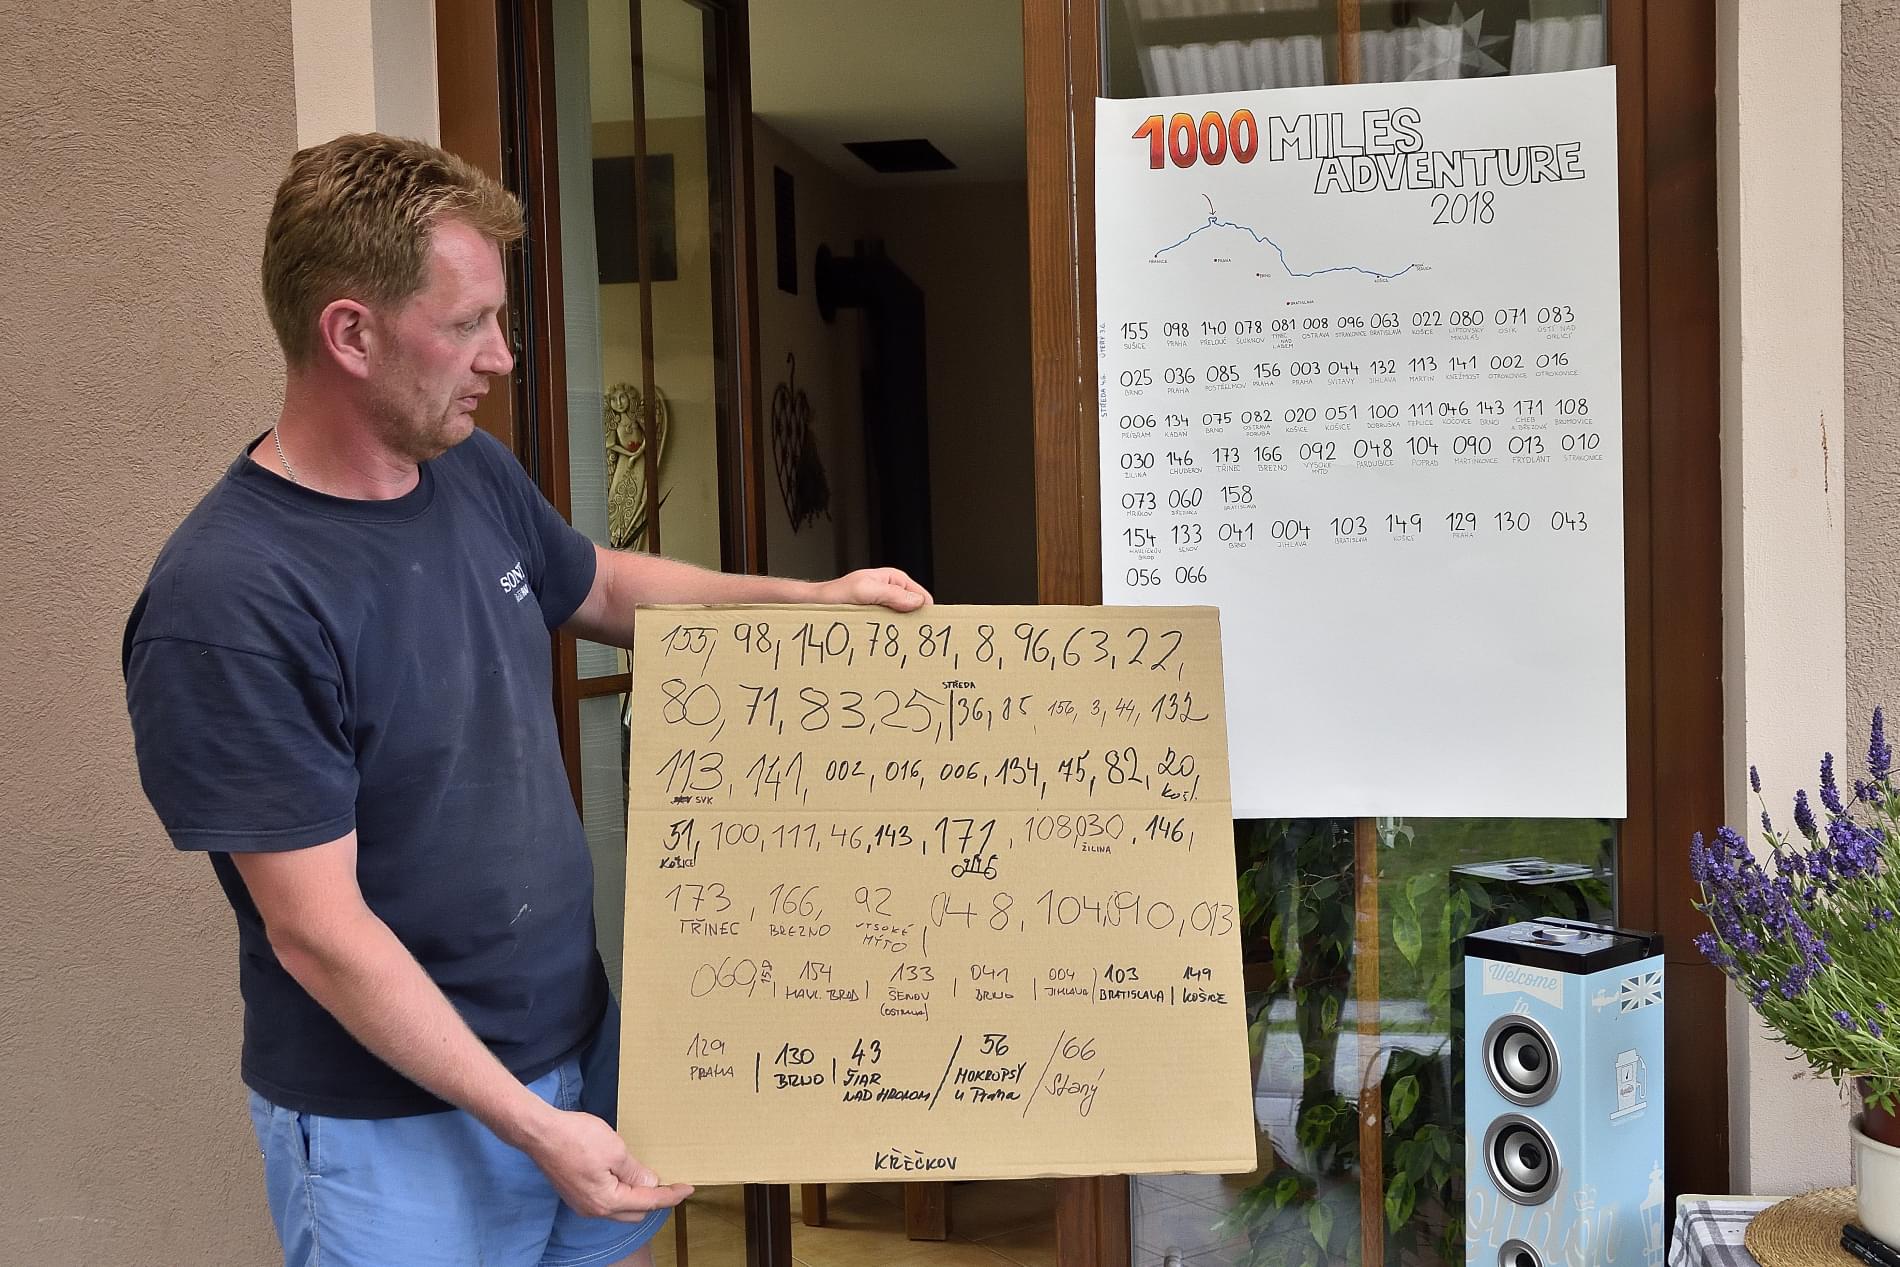 1000 MILES
ADVENTURE
2018
HRANICE
PRAHA
BRNO
BRATISLAVA
KOŠICE
NOVÁ
SEDLICA
ÚTERÝ 3.6.
STŘEDA 4.6.
155 098 140 078 081 008 096 063 022 080 071 083
SUŠICE PRAHA PŘELOUČ ŠLUKNOV TÝNEC NAD LABEM OSTRAVA STRAKONICE BRATISLAVA KOŠICE LIPTOVSKÝ MIKULÁŠ OSÍK ÚSTÍ NAD ORLICÍ
025 036 085 156 003 044 132 113 141 002 016
BRNO PRAHA POSTŘELMOV PRAHA PRAHA SVITAVY JIHLAVA MARTIN KNĚŽMOST OTROKOVICE OTROKOVICE
006 134 075 082 020 051 100 111 046 143 171 108
PŘÍBRAM KADAŇ BRNO OSTRAVA PORUBA KOŠICE KOŠICE DOBRUŠKA TEPLICE KOČOVCE BRNO CHEB A BŘEZOVÁ BRUMOVICE
030 146 173 166 092 048 104 090 013 010
ŽILINA CHUDEROV TŘINEC BREZNO VYSOKÉ MÝTO PARDUBICE POPRAD MARTINKOVICE FRÝDLANT STRAKONICE
073 060 158
MRÁKOV BŘEZINKA BRATISLAVA
154 133 041 004 103 149 129 130 043
HAVLÍČKŮV BROD ŠENOV BRNO JIHLAVA BRATISLAVA KOŠICE PRAHA
056 066
155, 98, 140, 78, 81, 8, 96, 63, 22,
STŘEDA
80, 71, 83, 25, 36, 85 156, 3, 44, 132
113, 141, 002, 016, 006, 134, 75, 82, 20
SVK KOŠ.
51, 100, 111, 46, 143, 171, 108, 030, 146,
KOŠICE ŽILINA
173, 166, 92 048, 104, 090, 013
TŘINEC BREZNO VYSOKÉ MÝTO
060, 154 133 041 004 103 149
HAVL. BROD ŠENOV (OSTRAVA) BRNO JIHLAVA BRATISLAVA KOŠICE
129 130 43 56 66
PRAHA BRNO ŽIAR NAD HRONOM MOKROPSY u Praha Slaný
KŘEČKOV
Welcome
to
London